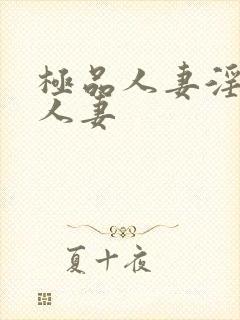 極品人妻淫
人妻
夏十夜